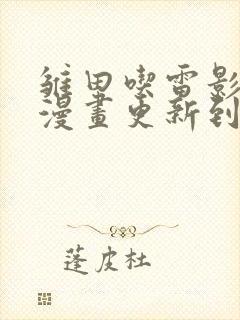 雏田喫雷影
漫畫更新到
蓬皮杜